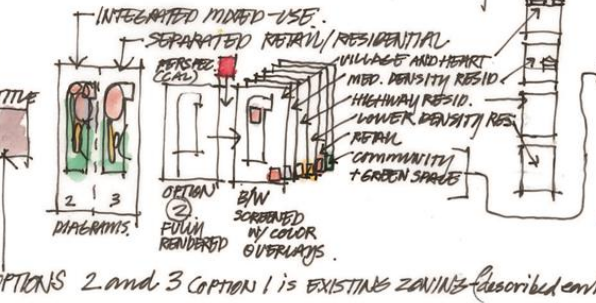 INTEGRATED MIXED-USE.
SEPARATED RETAIL/RESIDENTIAL
PERSPEC
(CAL)
VILLAGE AND HEART
MED. DENSITY RESID
HIGHWAY RESID.
LOWER DENSITY RES.
RETAIL
COMMUNITY
+ GREEN SPACE
TITLE
2 3
DIAGRAMS.
OPTION
2
FULLY
RENDERED
B/W
SCREENED
W/ COLOR
OVERLAYS.
OPTIONS 2 and 3 (OPTION 1 is EXISTING ZONING (described